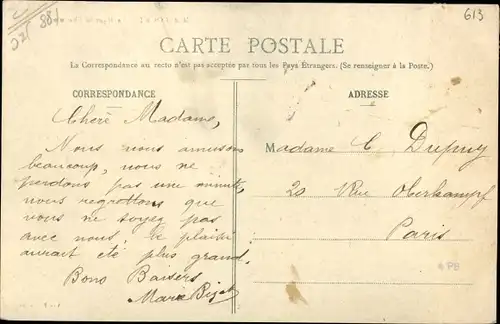 613
CARTE POSTALE
La Correspondance au recto n'est pas acceptée par tous les Pays Étrangers. (Se renseigner à la Poste.)
CORRESPONDANCE
Chère Madame,
Nous nous amusons
beaucoup, nous ne
perdons pas une minute
nous regrettons que
vous ne soyez pas
avec nous. le plaisir
aurait été plus grand.
Bons Baisers
Marie
ADRESSE
Madame C. Dupuy
20 Rue Oberkampf
Paris